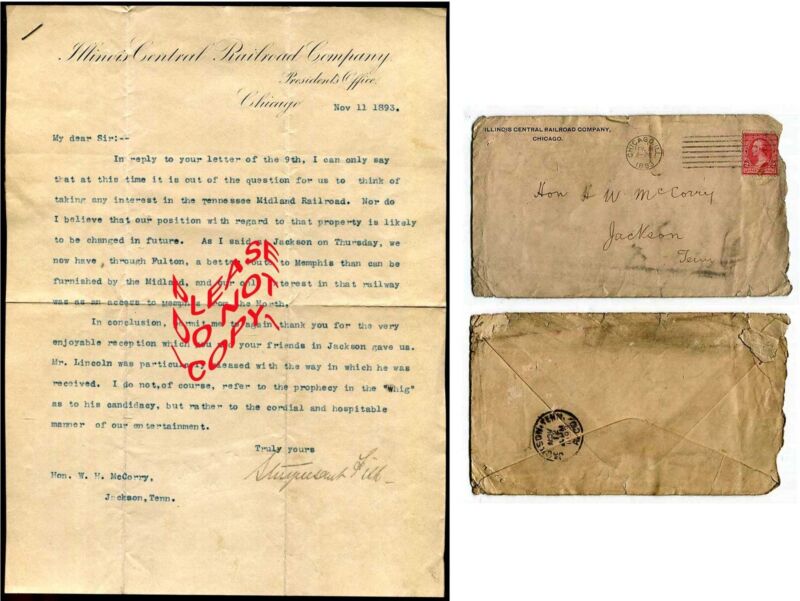 Illinois Central Railroad Company.
President's Office.
Chicago Nov 11 1893.
My dear Sir:--
In reply to your letter of the 9th, I can only say
that at this time it is out of the question for us to think of
taking any interest in the Tennessee Midland Railroad. Nor do
I believe that our position with regard to that property is likely
to be changed in future. As I said at Jackson on Thursday, we
now have, through Fulton, a better route to Memphis than can be
furnished by the Midland, and our only interest in that railway
was as an access to Memphis from the North.
In conclusion, permit me to again thank you for the very
enjoyable reception which you and your friends in Jackson gave us.
Mr. Lincoln was particularly pleased with the way in which he
was received. I do not,of course, refer to the prophecy in the "Whig"
as to his candidacy, but rather to the cordial and hospitable
manner of our entertainment.
Truly yours
Stuyvesant Fish
Hon. W. H. McCorry,
Jackson,Tenn.
PLEASE
DO NOT
COPY!
ILLINOIS CENTRAL RAILROAD COMPANY,
CHICAGO.
CHICAGO, ILL.
1893
Hon H W McCorry
Jackson
Tenn
JACKSON, TENN.
NOV